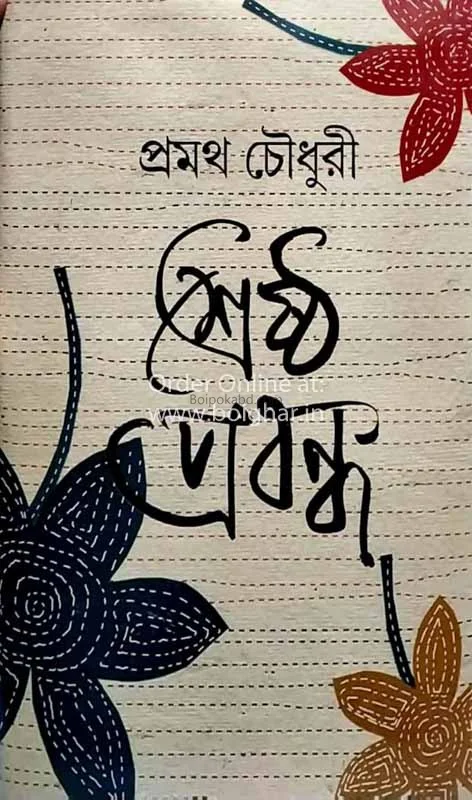 প্রমথ চৌধুরী
শ্রেষ্ঠ
Order Online at:
Boipokabd.
www.boighar.in
প্রবন্ধ